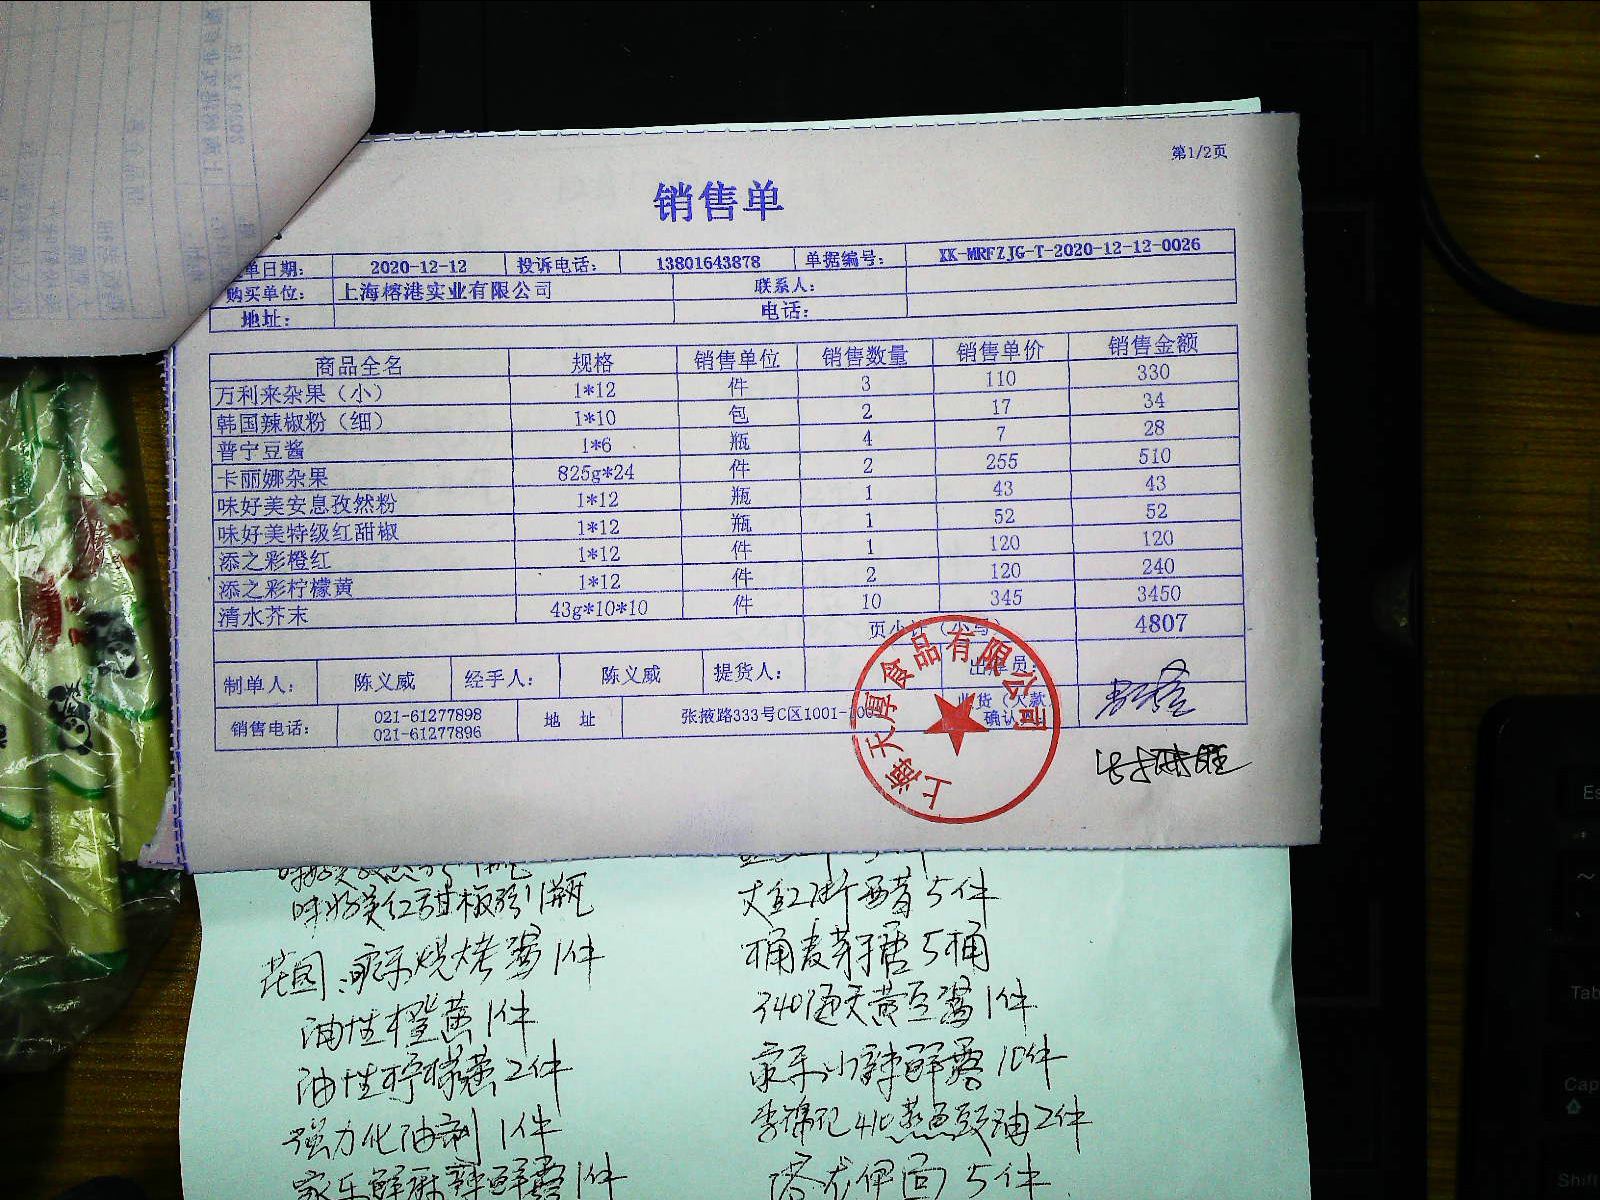 第1/2页
销售单
单日期： 2020-12-12 投诉电话： 13801643878 单据编号： XK-MRFZJG-T-2020-12-12-0026
购买单位： 上海榕港实业有限公司 联系人：
地址： 电话：
商品全名 规格 销售单位 销售数量 销售单价 销售金额
万利来杂果（小） 1*12 件 3 110 330
韩国辣椒粉（细） 1*10 包 2 17 34
普宁豆酱 1*6 瓶 4 7 28
卡丽娜杂果 825g*24 件 2 255 510
味好美安息孜然粉 1*12 瓶 1 43 43
味好美特级红甜椒 1*12 瓶 1 52 52
添之彩橙红 1*12 件 1 120 120
添之彩柠檬黄 1*12 件 2 120 240
清水芥末 43g*10*10 件 10 345 3450
页小计（小写） 4807
制单人： 陈义威 经手人： 陈义威 提货人： 出库员：
销售电话： 021-61277898 021-61277896 地 址 张掖路333号C区1001-100 收货（欠款） 确认
上海天厚食品有限公司
味好美红甜椒粉1瓶
花园：家乐烧烤酱1件
油性橙黄1件
油性柠檬黄2件
强力化油剂1件
家乐鲜麻辣鲜露1件
大红浙醋5件
桶麦芽糖5桶
340通天黄豆酱1件
家乐小辣鲜露10件
李锦记410蒸鱼豉油2件
5件